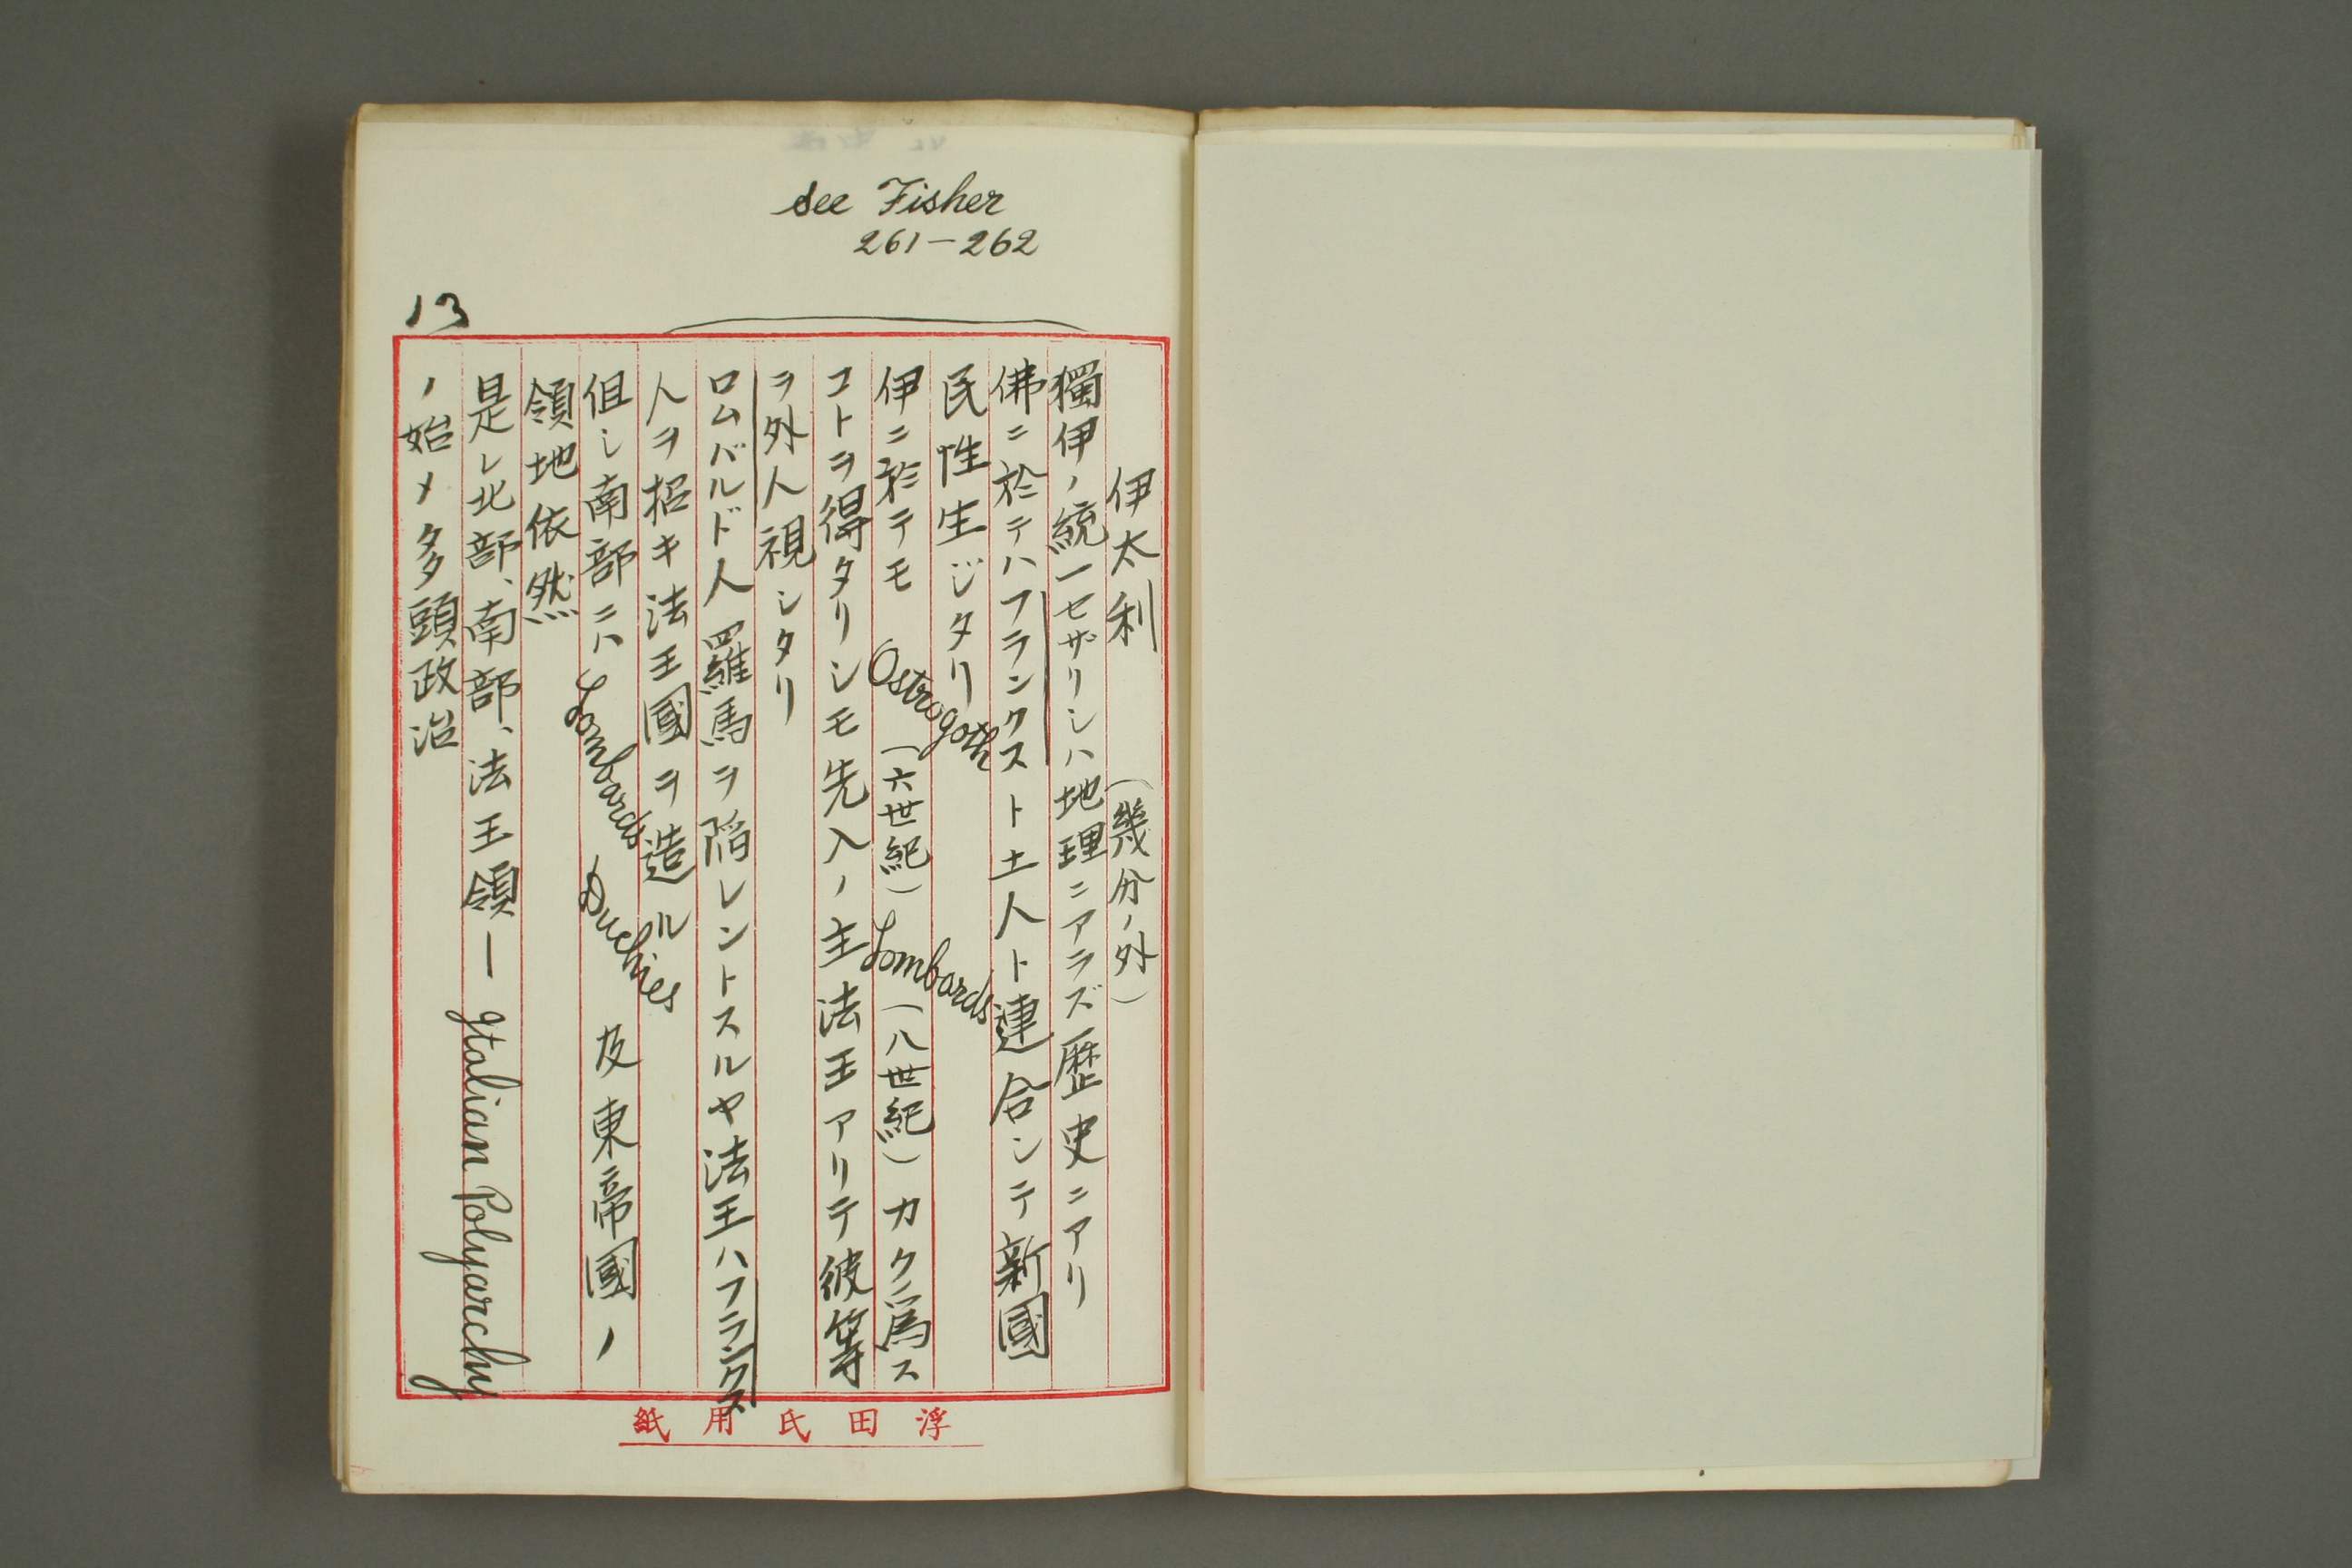 see Fisher
261-262
13
伊太利 (幾分ノ外)
獨伊ノ統一セザリシハ地理ニアラズ歴史ニアリ
佛ニ於テハフランクスト土人ト連合シテ新國
民性生ジタリ
伊ニ於テモ Ostrogoth (六世紀) Lombards (八世紀) カク為ス
コトヲ得タリシモ先入ノ主法王アリテ彼等
ヲ外人視シタリ
ロムバルド人羅馬ヲ陥レントスルヤ法王ハフランクス
人ヲ招キ法王國ヲ造ル
但し南部ニハ Lombards Duchies 及東帝國ノ
領地依然
是レ北部、南部、法王領— Italian Polyarchy
ノ始メ多頭政治
浮田氏用紙